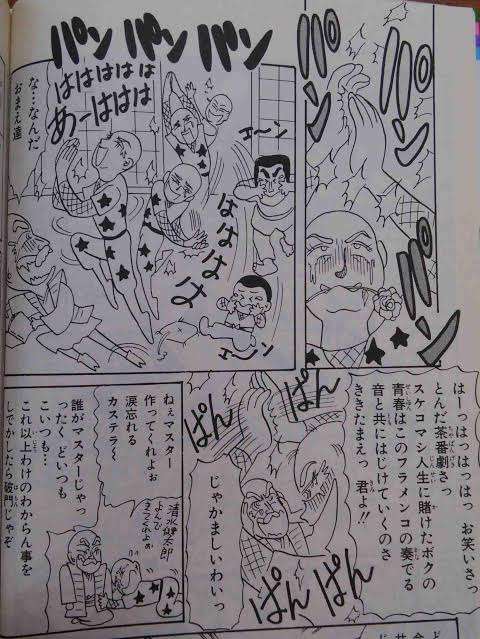 パン
パン
パン
はーっはっはっはっ お笑いさっ
とんだ茶番劇さっ
スケコマシ人生に賭けたボクの
青春はこのフラメンコの奏でる
音と共にはじけていくのさ
ききたまえっ 君よ!!
パン パン パン
はははははは
あーははは
な…なんだ
おまえ達
エ〜ン
はははははは
エ〜ン
ぱん
ぱん
じゃかましいわいっ
ぱんぱん
ねぇマスター
作ってくれよぉ
涙忘れる
カステラ〜
清水健太郎
よんで
きてくれよぉ
誰がマスターじゃっ
ったく どいつも
こいつも…
これ以上わけのわからん事を
しでかしたら破門じゃぞ